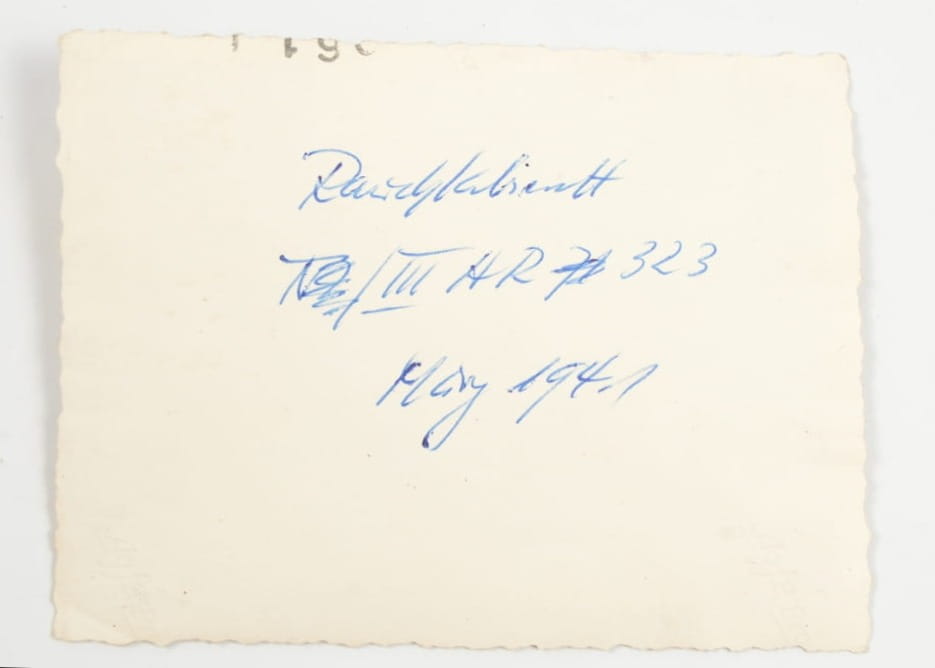 Rauchkabinett
III AR 323
März 1941